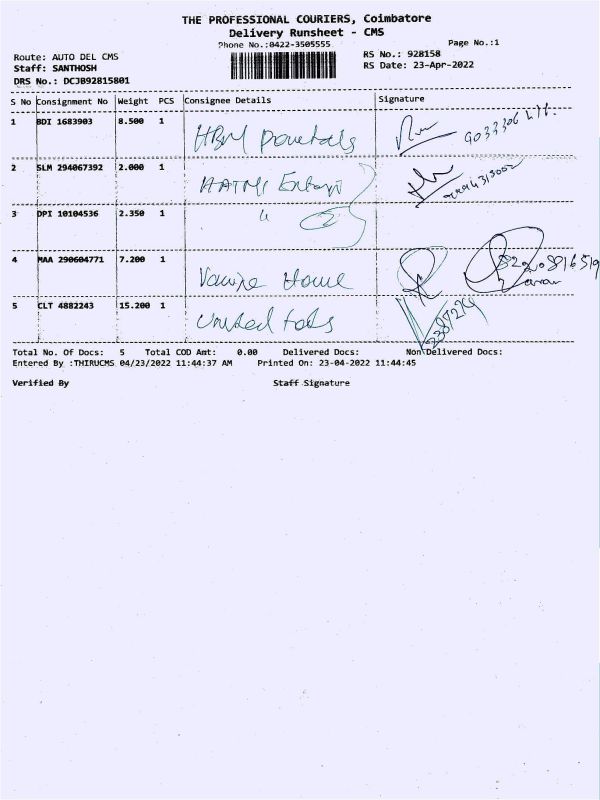 THE PROFESSIONAL COURIERS, Coimbatore
Delivery Runsheet - CMS
Phone No.:0422-3505555
Page No.:1
Route: AUTO DEL CMS
RS No.: 928158
Staff: SANTHOSH
RS Date: 23-Apr-2022
DRS No.: DCJB92815801
S No Consignment No Weight PCS Consignee Details Signature
1 BDI 1683903 8.500 1 HBM
2 SLM 294067392 2.000 1
3 DPI 10104536 2.350 1 "
4 MAA 290604771 7.200 1 Home
5 CLT 4882243 15.200 1 United
Total No. Of Docs: 5 Total COD Amt: 0.00 Delivered Docs: Non Delivered Docs:
Entered By :THIRUCMS 04/23/2022 11:44:37 AM Printed On: 23-04-2022 11:44:45
Verified By Staff Signature